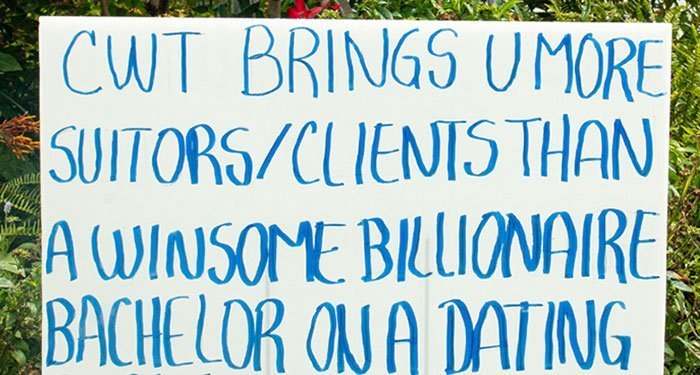 CWT BRINGS U MORE
SUITORS/CLIENTS THAN
A WINSOME BILLIONAIRE
BACHELOR ON A DATING